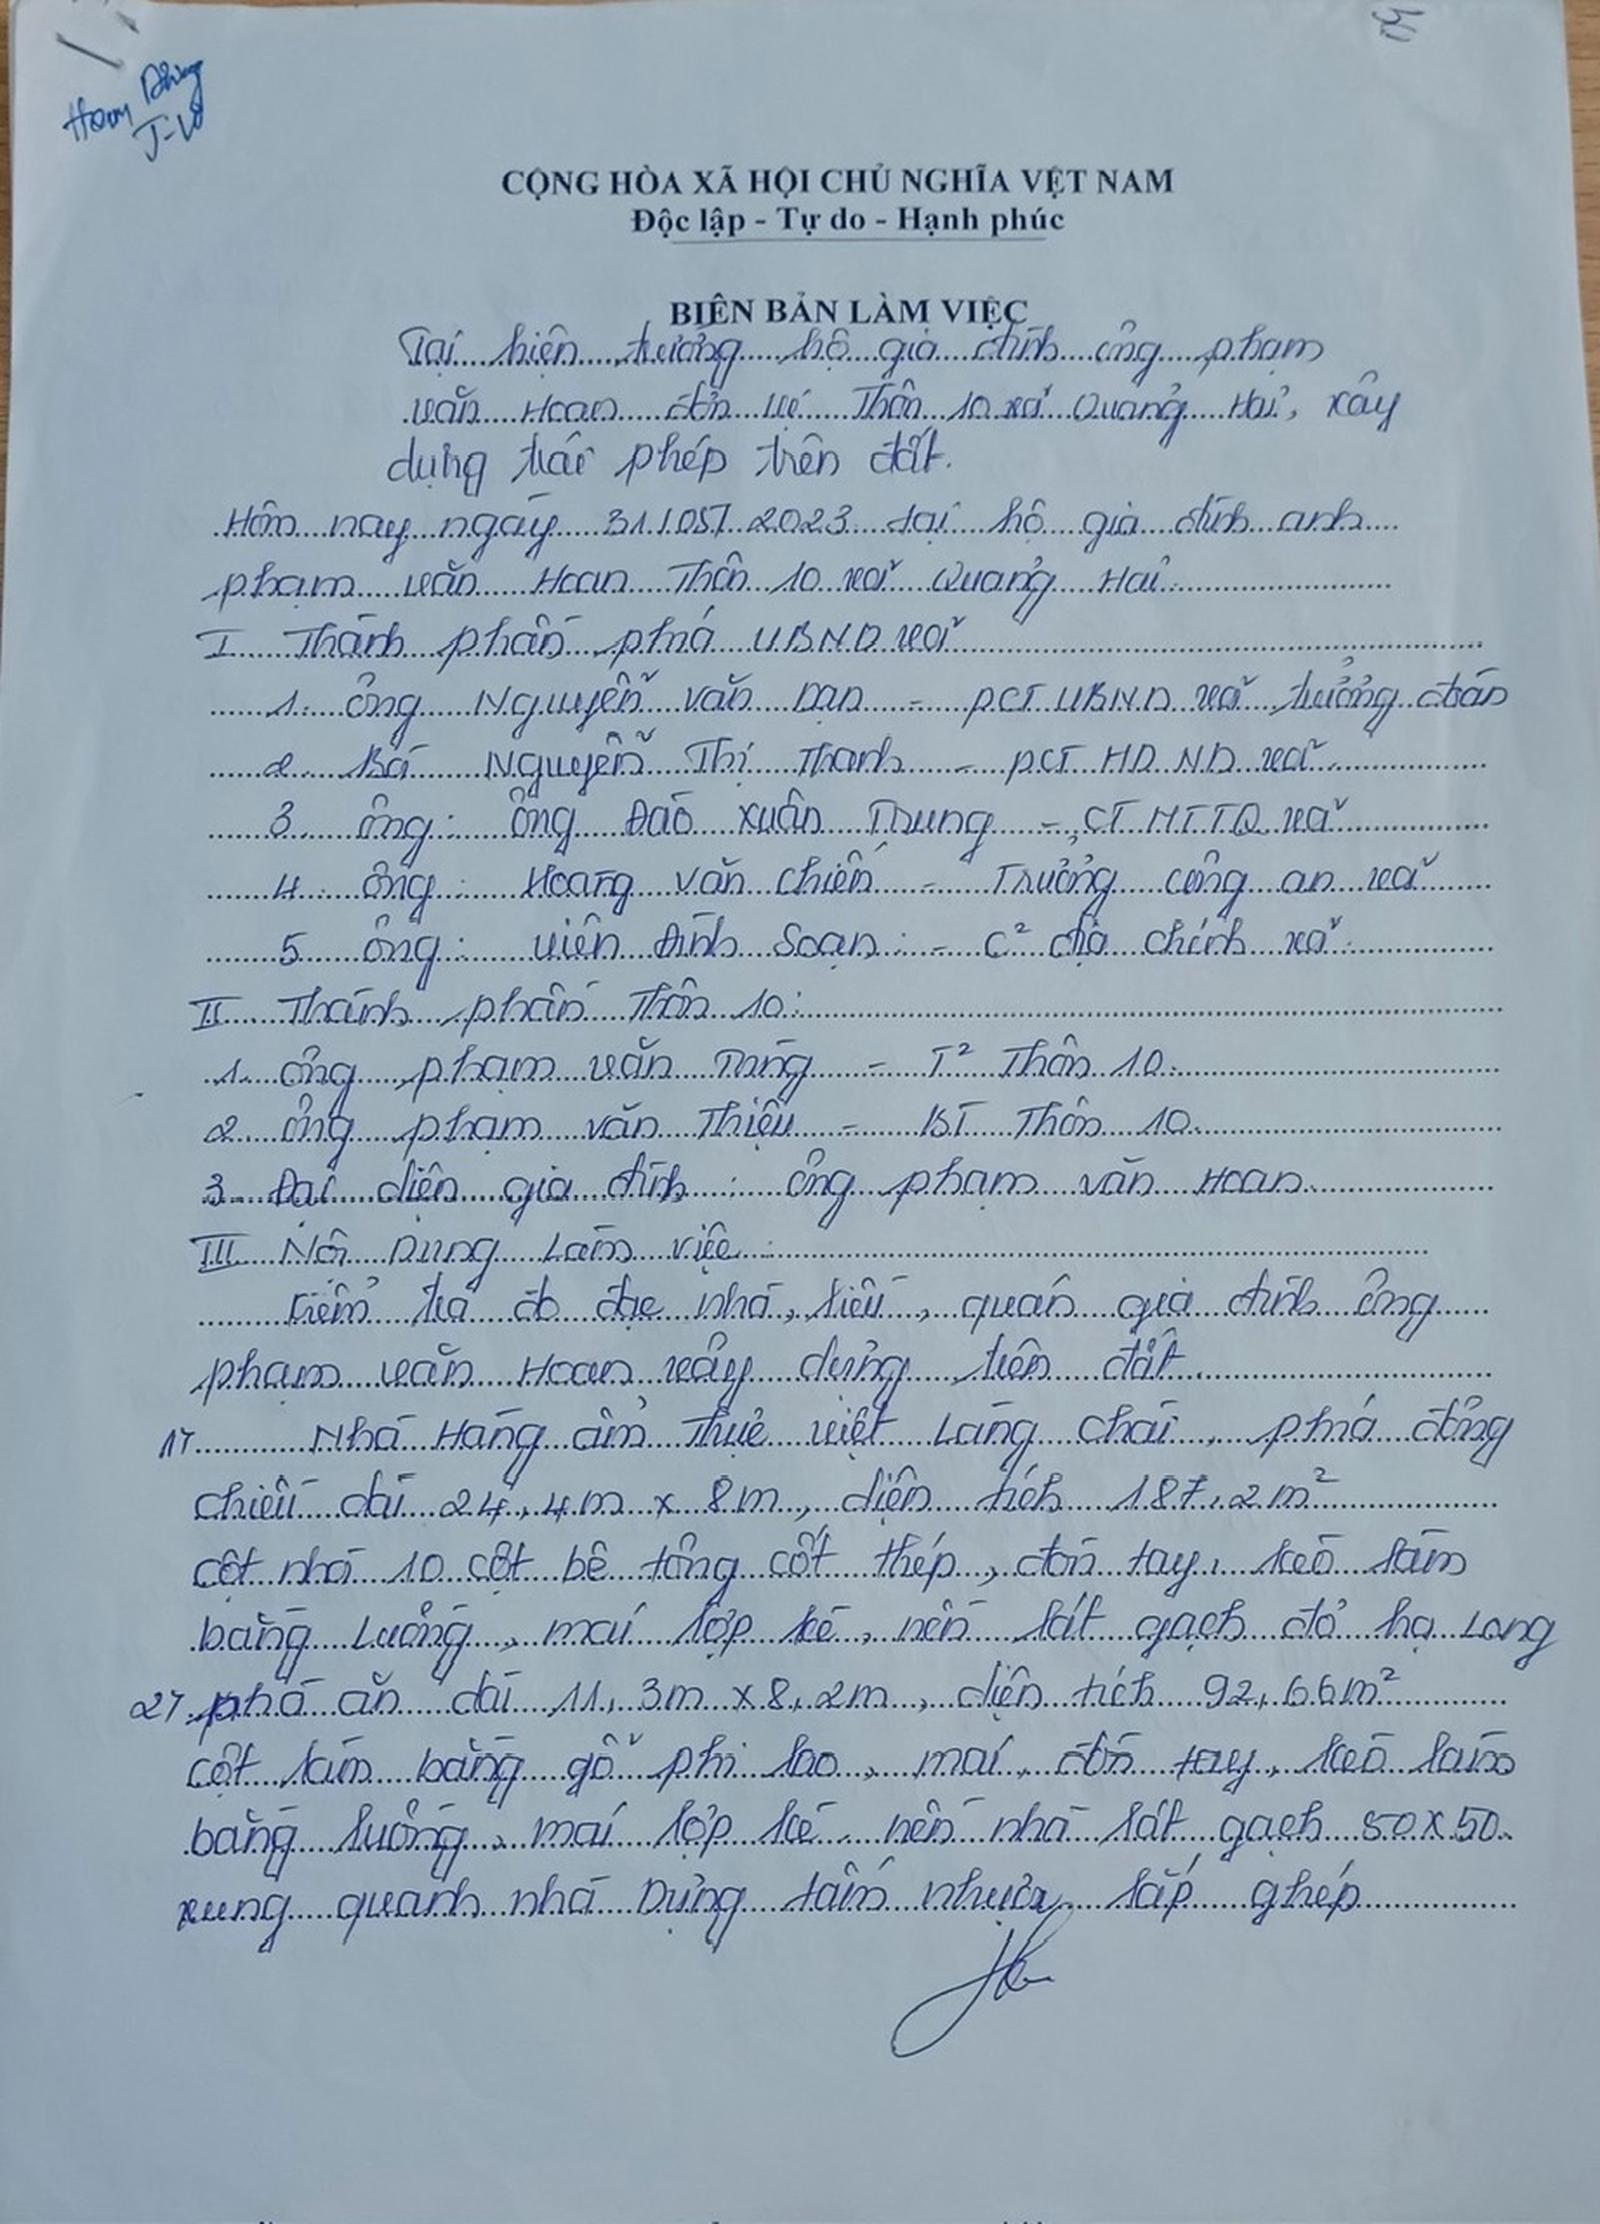 50
Hoan Dũng
CỘNG HÒA XÃ HỘI CHỦ NGHĨA VIỆT NAM
Độc lập - Tự do - Hạnh phúc
BIÊN BẢN LÀM VIỆC
Tại hiện trường hộ gia đình ông phạm
văn Hoan đơn vị Thôn 10 xã Quảng Hải, xây
dựng trái phép trên đất.
Hôm nay ngày 31/05/2023 tại hộ gia đình anh
phạm văn Hoan Thôn 10 xã Quảng Hải
I Thành phần phía UBND xã
1. ông Nguyễn văn Dạn - PCT UBND xã trưởng đoàn
2. Bà Nguyễn Thị Thanh - PCT HĐND xã
3 ông: ông Đào xuân Trung - CT MTTQ xã
4. ông: Hoàng văn chiến - Trưởng công an xã
5 ông: viên Đình Soạn: - C² địa chính xã
II Thành phần Thôn 10:
1. ông phạm văn Tùng - T² Thôn 10
2. ông phạm văn Thiệu - BT Thôn 10
3. Đại diện gia đình: ông phạm văn Hoan
III Nội Dung Làm việc:
kiểm tra đo đạc nhà, lều, quán gia đình ông
phạm văn Hoan xây dựng trên đất
1, Nhà Hàng ẩm Thực việt Làng chài, phía đông
chiều dài 24,4m x 8m, diện tích 187,2m²
cột nhà 10 cột bê tông cốt thép, đòn tay, kèo làm
bằng Luồng, mái lợp kè, nền lát gạch đỏ hạ Long
2, nhà ăn dài 11,3m x 8,2m, diện tích 92,66m²
cột làm bằng gỗ phi lao, mái, đòn tay, kèo làm
bằng luồng, mái lợp kè nền nhà lát gạch 50x50.
xung quanh nhà Dựng tấm nhựa lắp ghép